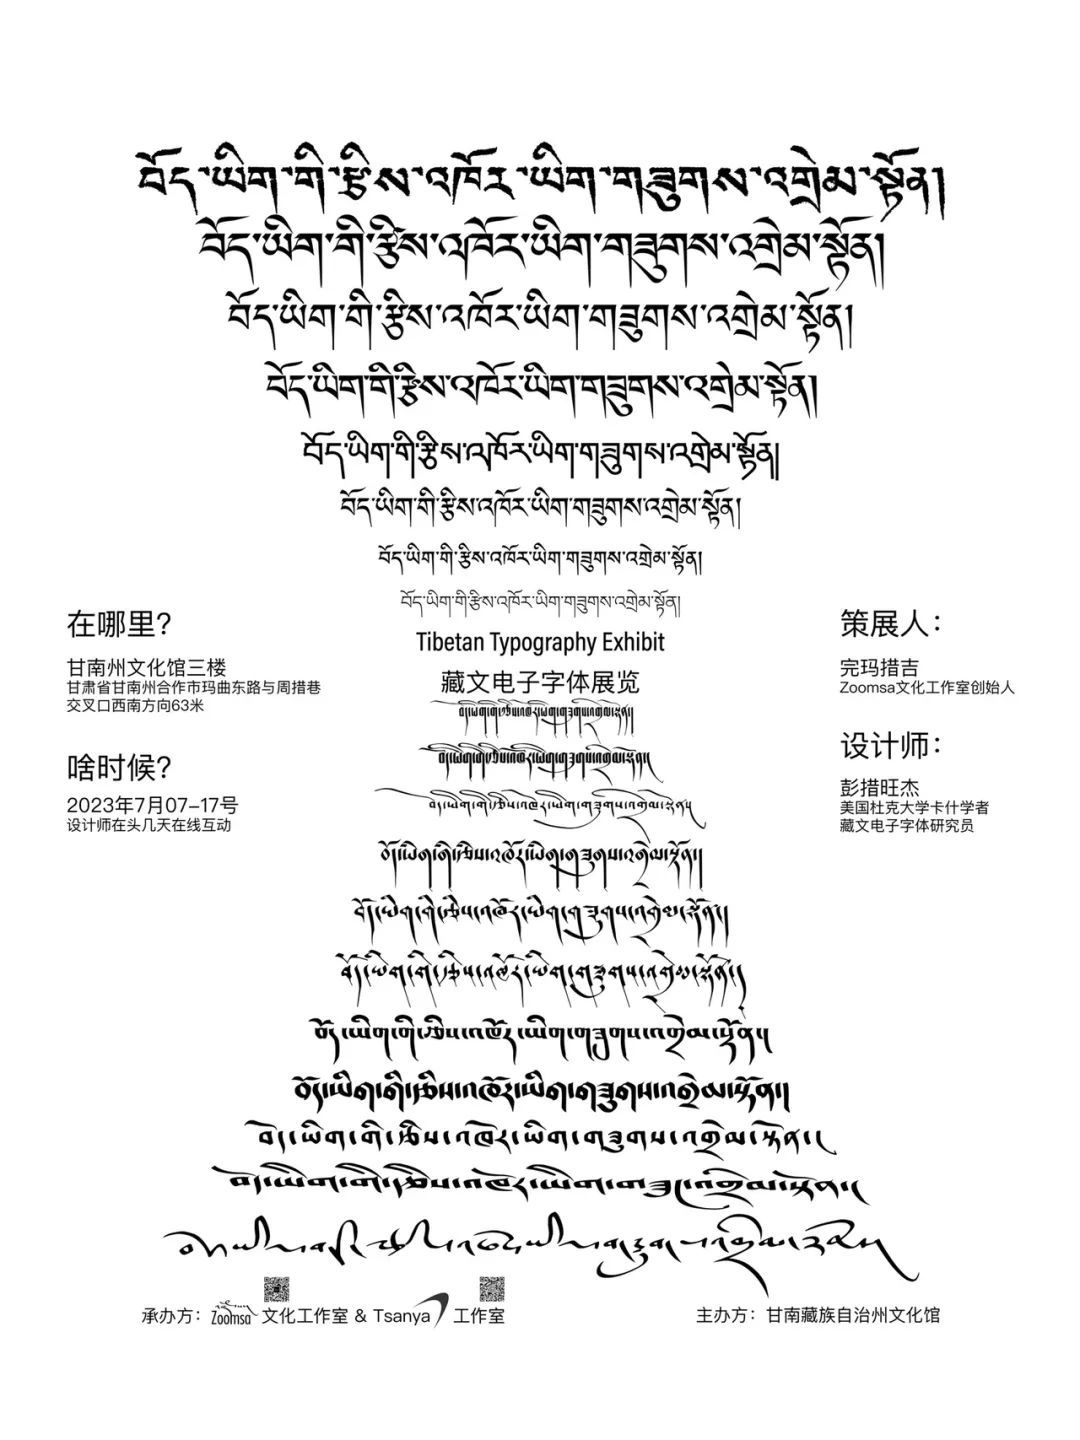 བོད་ཡིག་གི་རྩིས་འཁོར་ཡིག་གཟུགས་འགྲེམ་སྟོན།
བོད་ཡིག་གི་རྩིས་འཁོར་ཡིག་གཟུགས་འགྲེམ་སྟོན།
བོད་ཡིག་གི་རྩིས་འཁོར་ཡིག་གཟུགས་འགྲེམ་སྟོན།
བོད་ཡིག་གི་རྩིས་འཁོར་ཡིག་གཟུགས་འགྲེམ་སྟོན།
བོད་ཡིག་གི་རྩིས་འཁོར་ཡིག་གཟུགས་འགྲེམ་སྟོན།
བོད་ཡིག་གི་རྩིས་འཁོར་ཡིག་གཟུགས་འགྲེམ་སྟོན།
བོད་ཡིག་གི་རྩིས་འཁོར་ཡིག་གཟུགས་འགྲེམ་སྟོན།
བོད་ཡིག་གི་རྩིས་འཁོར་ཡིག་གཟུགས་འགྲེམ་སྟོན།
Tibetan Typography Exhibit
藏文电子字体展览
བོད་ཡིག་གི་རྩིས་འཁོར་ཡིག་གཟུགས་འགྲེམ་སྟོན།
བོད་ཡིག་གི་རྩིས་འཁོར་ཡིག་གཟུགས་འགྲེམ་སྟོན།
བོད་ཡིག་གི་རྩིས་འཁོར་ཡིག་གཟུགས་འགྲེམ་སྟོན།
བོད་ཡིག་གི་རྩིས་འཁོར་ཡིག་གཟུགས་འགྲེམ་སྟོན།
བོད་ཡིག་གི་རྩིས་འཁོར་ཡིག་གཟུགས་འགྲེམ་སྟོན།
བོད་ཡིག་གི་རྩིས་འཁོར་ཡིག་གཟུགས་འགྲེམ་སྟོན།
བོད་ཡིག་གི་རྩིས་འཁོར་ཡིག་གཟུགས་འགྲེམ་སྟོན།
བོད་ཡིག་གི་རྩིས་འཁོར་ཡིག་གཟུགས་འགྲེམ་སྟོན།
བོད་ཡིག་གི་རྩིས་འཁོར་ཡིག་གཟུགས་འགྲེམ་སྟོན།
བོད་ཡིག་གི་རྩིས་འཁོར་ཡིག་གཟུགས་འགྲེམ་སྟོན།
བོད་ཡིག་གི་རྩིས་འཁོར་ཡིག་གཟུགས་འགྲེམ་སྟོན།
在哪里？
甘南州文化馆三楼
甘肃省甘南州合作市玛曲东路与周措巷
交叉口西南方向63米
啥时候？
2023年7月07-17号
设计师在头几天在线互动
策展人：
完玛措吉
Zoomsa文化工作室创始人
设计师：
彭措旺杰
美国杜克大学卡什学者
藏文电子字体研究员
承办方：Zoomsa 文化工作室 & Tsanya 工作室
主办方：甘南藏族自治州文化馆